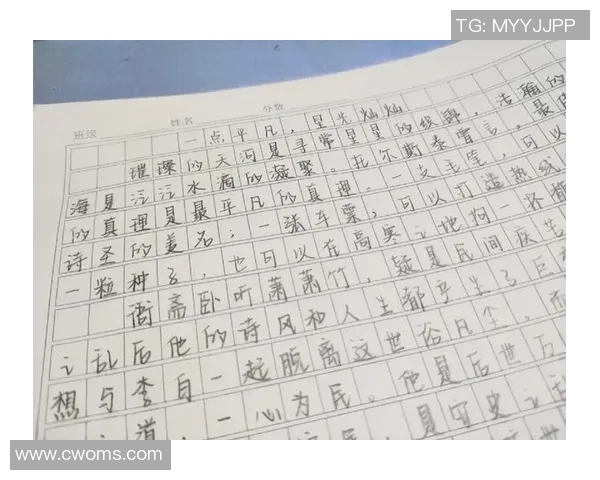 TG: MYYJJPP
班级 姓名 分数
一点平凡，星光灿灿
璀璨的天河是寻常星星的缤群，浩瀚的
海是汪汪水滴的凝聚。托尔斯泰曾言，最伟
的真理是最平凡的真理。一支毛笔，可以
诗圣的美名；一张车票，可以打造热线
一粒种子，也可以在高寒之地向一杯
衙斋卧听萧萧竹，疑是民间疾苦
之乱后他的诗风和人生都乎生了巨
想与李白一起脱离这世俗凡尘，而
道，一心为民。他是后世万
民，是守史之
www.cwoms.com